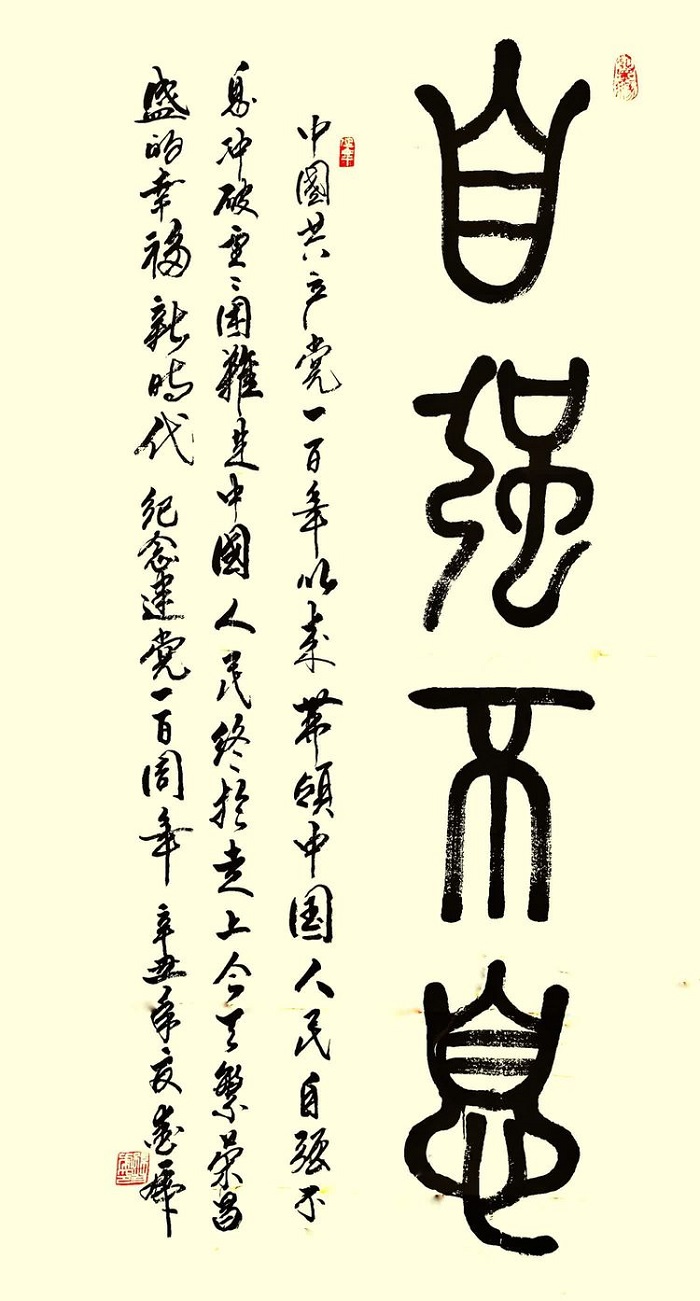 自强不息
中國共产党一百年以来带领中国人民自强不
息冲破重々困難是中國人民终於走上今天繁荣昌
盛的幸福新時代 纪念建党一百周年 辛丑年夏